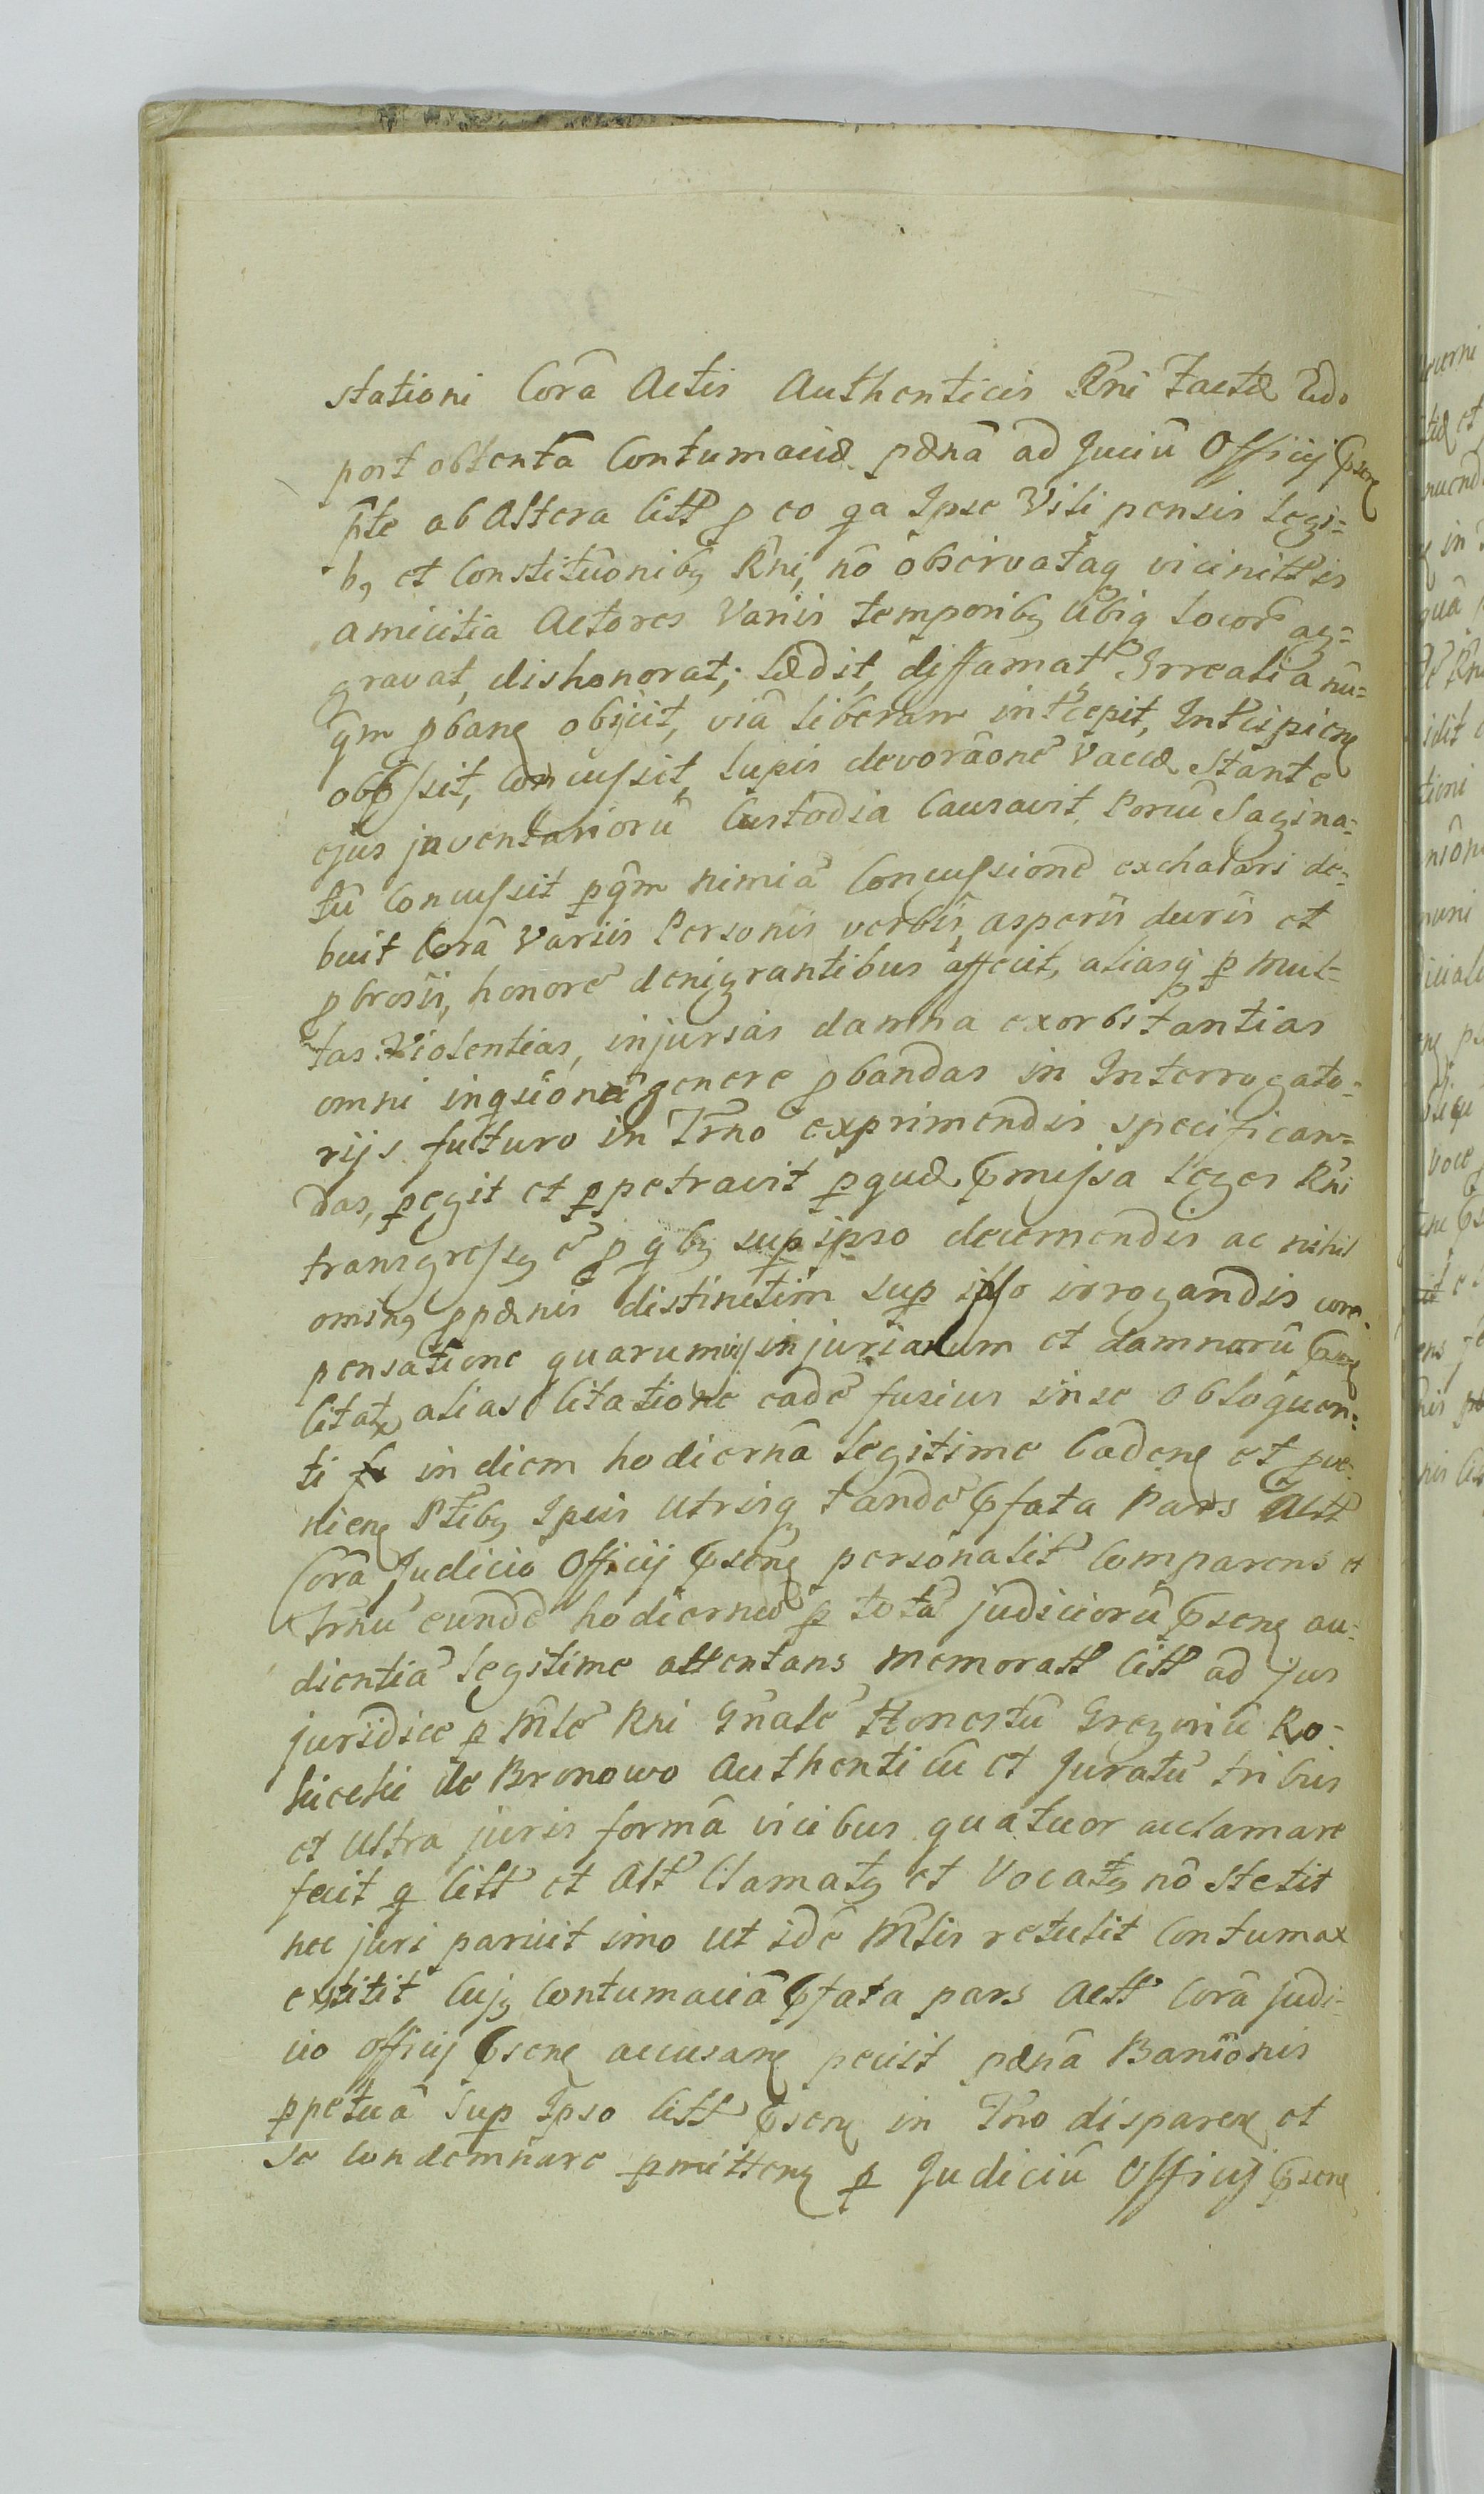 stationi Corã Actis Authenticis Rñi factæ
post obtentã Contumaciæ pænã ad Juciũ Officij Ꝑsene
p̃te ab Altera Citt ꝓ eo qa Ipse Vili pensis legi=
bꝫ et Constitũonibꝫ Rñi, nõ observataq vicinitt is
amicitia Actores Variis temporibꝫ Ubiq locor̃ ag=
gravat, dishonorat, lædit, diffamat, Irrealia nũ=
q̃m ꝓbane objicit, viã liberam intcepit, Intcipiene
obꝑssit, concussit, lupis devorãonẽ Vaccæ Stante
ejus inventariorũ Custodia Causavit, Porcũ Sagina=
tũ Concussit pq̃m nimiã Concussionẽ exhalari de=
buit Corã Variis Personis verbis, asperis duris et
ꝓbrosis, honorẽ denigrantibus affecit, aliasq̃ ꝑ Mul=
tas Violentias, injurias damna exorbitantias
omni inqsiõnẽ genere ꝓbandas in Interrogato=
rijs futuro in Trño exprimendis specifican=
das, ꝑegit et ꝑpetravit ꝑquæ Ꝑmissa leges Rñi
transgressꝫ ẽ ꝓ qbꝫ suꝑ ipso decernendis ac nihil
ominꝫ ꝓpænis distinctim suꝑ ipso irrogandis com
pensatione quarumvis injuriarum et damnorũ Ꝑsene
Citatꝫ alias Citatione eadẽ fusius in se obloquen=
ti in diem hodiernã legitime Cadene et ꝓve=
niene Ptibꝫ Ipsis utrisq tandẽ Ꝑfata Pars Actt
Corã Judicio Officij Ꝑsene personalit Comparens et
Trnũ eundẽ hodiernũ ꝑ totã judiciorũ Ꝑsene au=
dientiã legitime attentans memoratt Citt ad jus
juridice ꝑ Mlẽ Rni Gñalẽ Honestũ Gregoriũ Ro=
kicski de Bronowo Authenticũ et Juratũ tribus
et Ultra juris formã vicibus quatuor acclamare
fecit q Citt et Att Clamatꝫ et Vocatꝫ nõ stetit
nec juri paruit imo ut idẽ Mlis retulit Contumax
extitit Cujꝫ Contumaciã Ꝑfata pars Actt Corã judi=
cio officij Ꝑsene accusane peciit pænã Baniõnis
ꝑpetuã Suꝑ Ipso Citt Ꝑsene in Trño disparene et
se Condemnare ꝑmittene ꝑ Judiciũ Officij Ꝑsene